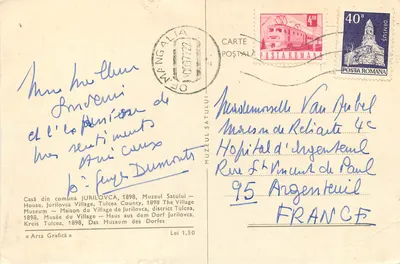 CARTE
POSTALĂ
4.80
POSTA ROMANA
40B
DENSUȘ
POSTA ROMANA
MANGALIA
Mon Meilleur
Souvenir
et l'expression de
mes sentiments
Amicaux
Dr Georges Dumonts
Mademoiselle Van
Maison de Retraite 4C
Hôpital d'Argenteuil
Rue St Vincent de Paul
95 Argenteuil
FRANCE
MUZEUL SATULUI
Casă din comuna JURILOVCA, 1898, Muzeul Satului —
House, Jurilovca Village, Tulcea County, 1898 The Village
Museum — Maison du Village de Jurilovca, district Tulcea,
1898, Musée du Village — Haus aus dem Dorf Jurilovca,
Kreis Tulcea, 1898, Das Museum des Dorfes
« Arta Grafică »
Lei 1,50